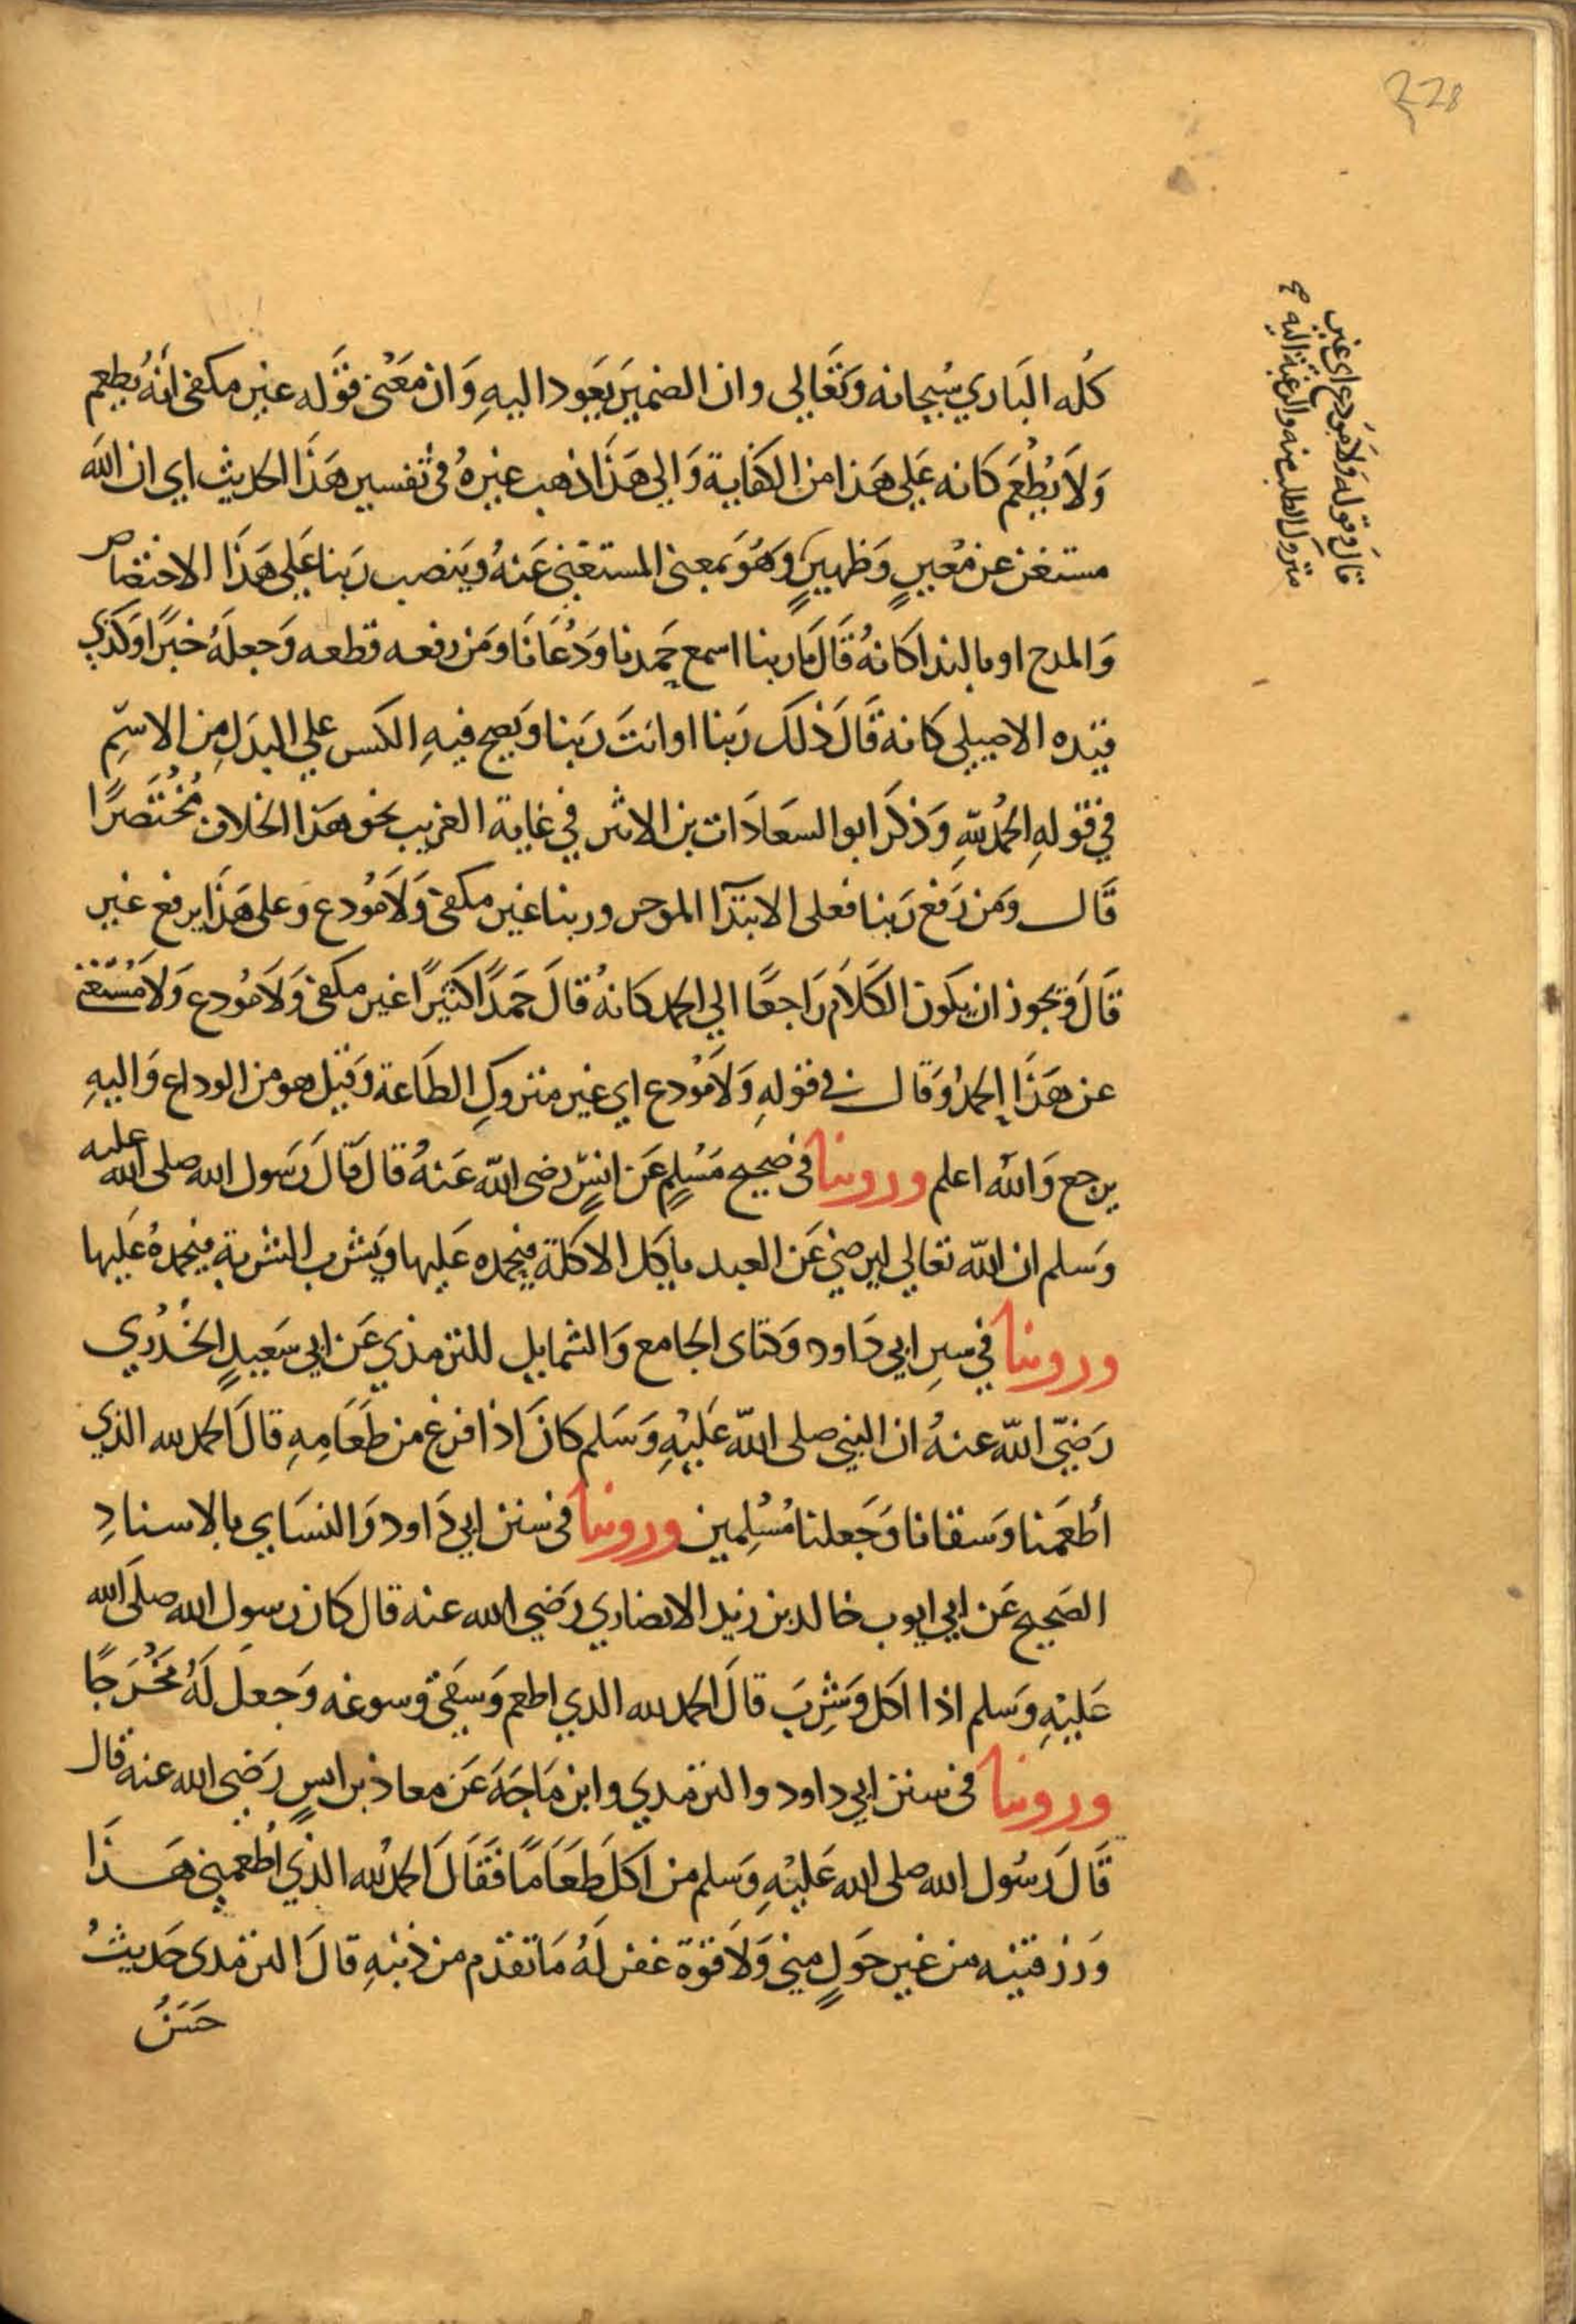 228
قال وقوله ولا مودع اي غير
متروك الطلب منه والرغبة اليه صح
كُله البَاري سُبحانه وَتَعَالي وان الضميرَ يَعَود اليهِ وَان مَعْنى قَوَله غير مكفى انَهُ يُطعِم
وَلَا يُطْعَم كانه عَلي هَذا من الكفَاية وَالي هَذَا ذهب غيرهُ في تفسير هَذَا الحديث اي ان الله
مستغن عن مُعينٍ وَظهيرٍ وَهُوَ بمعنى المستغنى عَنهُ وَينصب رَبنا عَلي هَذَا الاختصاص
وَالمدح او بالندا كانهُ قَالَ يَا ربنا اسمع حَمدنا وَدُعَانَا وَمَن رفعه قطعه وَجعلَهُ خبَرًا وَكَذى
قيده الاصيلي كانه قَالَ ذَلكَ رَبنا او انتَ رَبنا وَيصح فيهِ الكسر علي البدَلِ من الاسمِ
في قولهِ الحمُد للهِ وَذكرَ ابو السعَادَات بن الاثير في غاية الغريب نحو هَذا الخلاف مُخُتَصَرًا
قَال وَمَن رَفَع رَبنا فعلى الابتَدآ الموخر وربنا غير مكفى وَلَا مُودع وَعلي هَذَا يرفع غير
قَالَ وَيجوز ان يكَون الكلَام رَاجعًا الي الحمد كانهُ قالَ حَمَدًا كثيرًا غير مكفى وَلَا مُودع وَلَا مُسْتغنى
عن هَذَا الحمدُ وَقال في قولهِ وَلَا مُودع اي غير متروكِ الطَاعة وَقيل هو من الوداع وَاليهِ
يرجع وَاللهُ اعلم وروينا فى صحيح مَسُلمٍ عَن انسٍ رضى الله عَنهُ قالَ قَالَ رَسول الله صلى الله عليه
وَسلم ان الله تعَالي ليرضىَ عَن العبد ياَكل الاكلَة فيحمده عَليها وَيشرب الشربةِ فيحمدهُ عَليها
وروينا في سِرِ ابي دَاود وَكتاى الجامع وَالشمايل للترمذي عَن ابي سَعيدٍ الخُدُرِي
رَضيَ الله عنهُ ان النبي صلى الله عَليْهِ وَسَلم كانَ اذا فرغ من طَعَامِهِ قالَ الحمد لله الذي
اُطعَمنا وَسقانا وَجَعلنا مُسُلمين وروينا فى سنن ابي دَاود وَالنسَاي بالاسنادِ
الصَحيح عَن ابي ايوب خالد بن زيد الانصاري رَضي الله عنه قال كان رَسول الله صلى الله
عَليْهِ وَسلم اذا اكل وَشرِبَ قالَ الحمد لله الذي اطعم وَسَقَى وسوغه وَجعلَ لَهُ مَخُرَجًا
وروينا فى سنن ابي داود والترمدي وابن مَاجَة عَن معاذ بن انسٍ رَضي الله عنه قال
قَالَ رَسُول الله صلى الله عَليْهِ وَسلم من اكَلَ طَعَامًا فَقَالَ الحمدُ لله الذي اُطعمني هَذَا
وَرزقنيه من غير حَولٍ مني وَلَا قوة غفر لَهُ مَا تقدم من ذنبهِ قالَ الترمدى حَديثُ
حَسَنُ